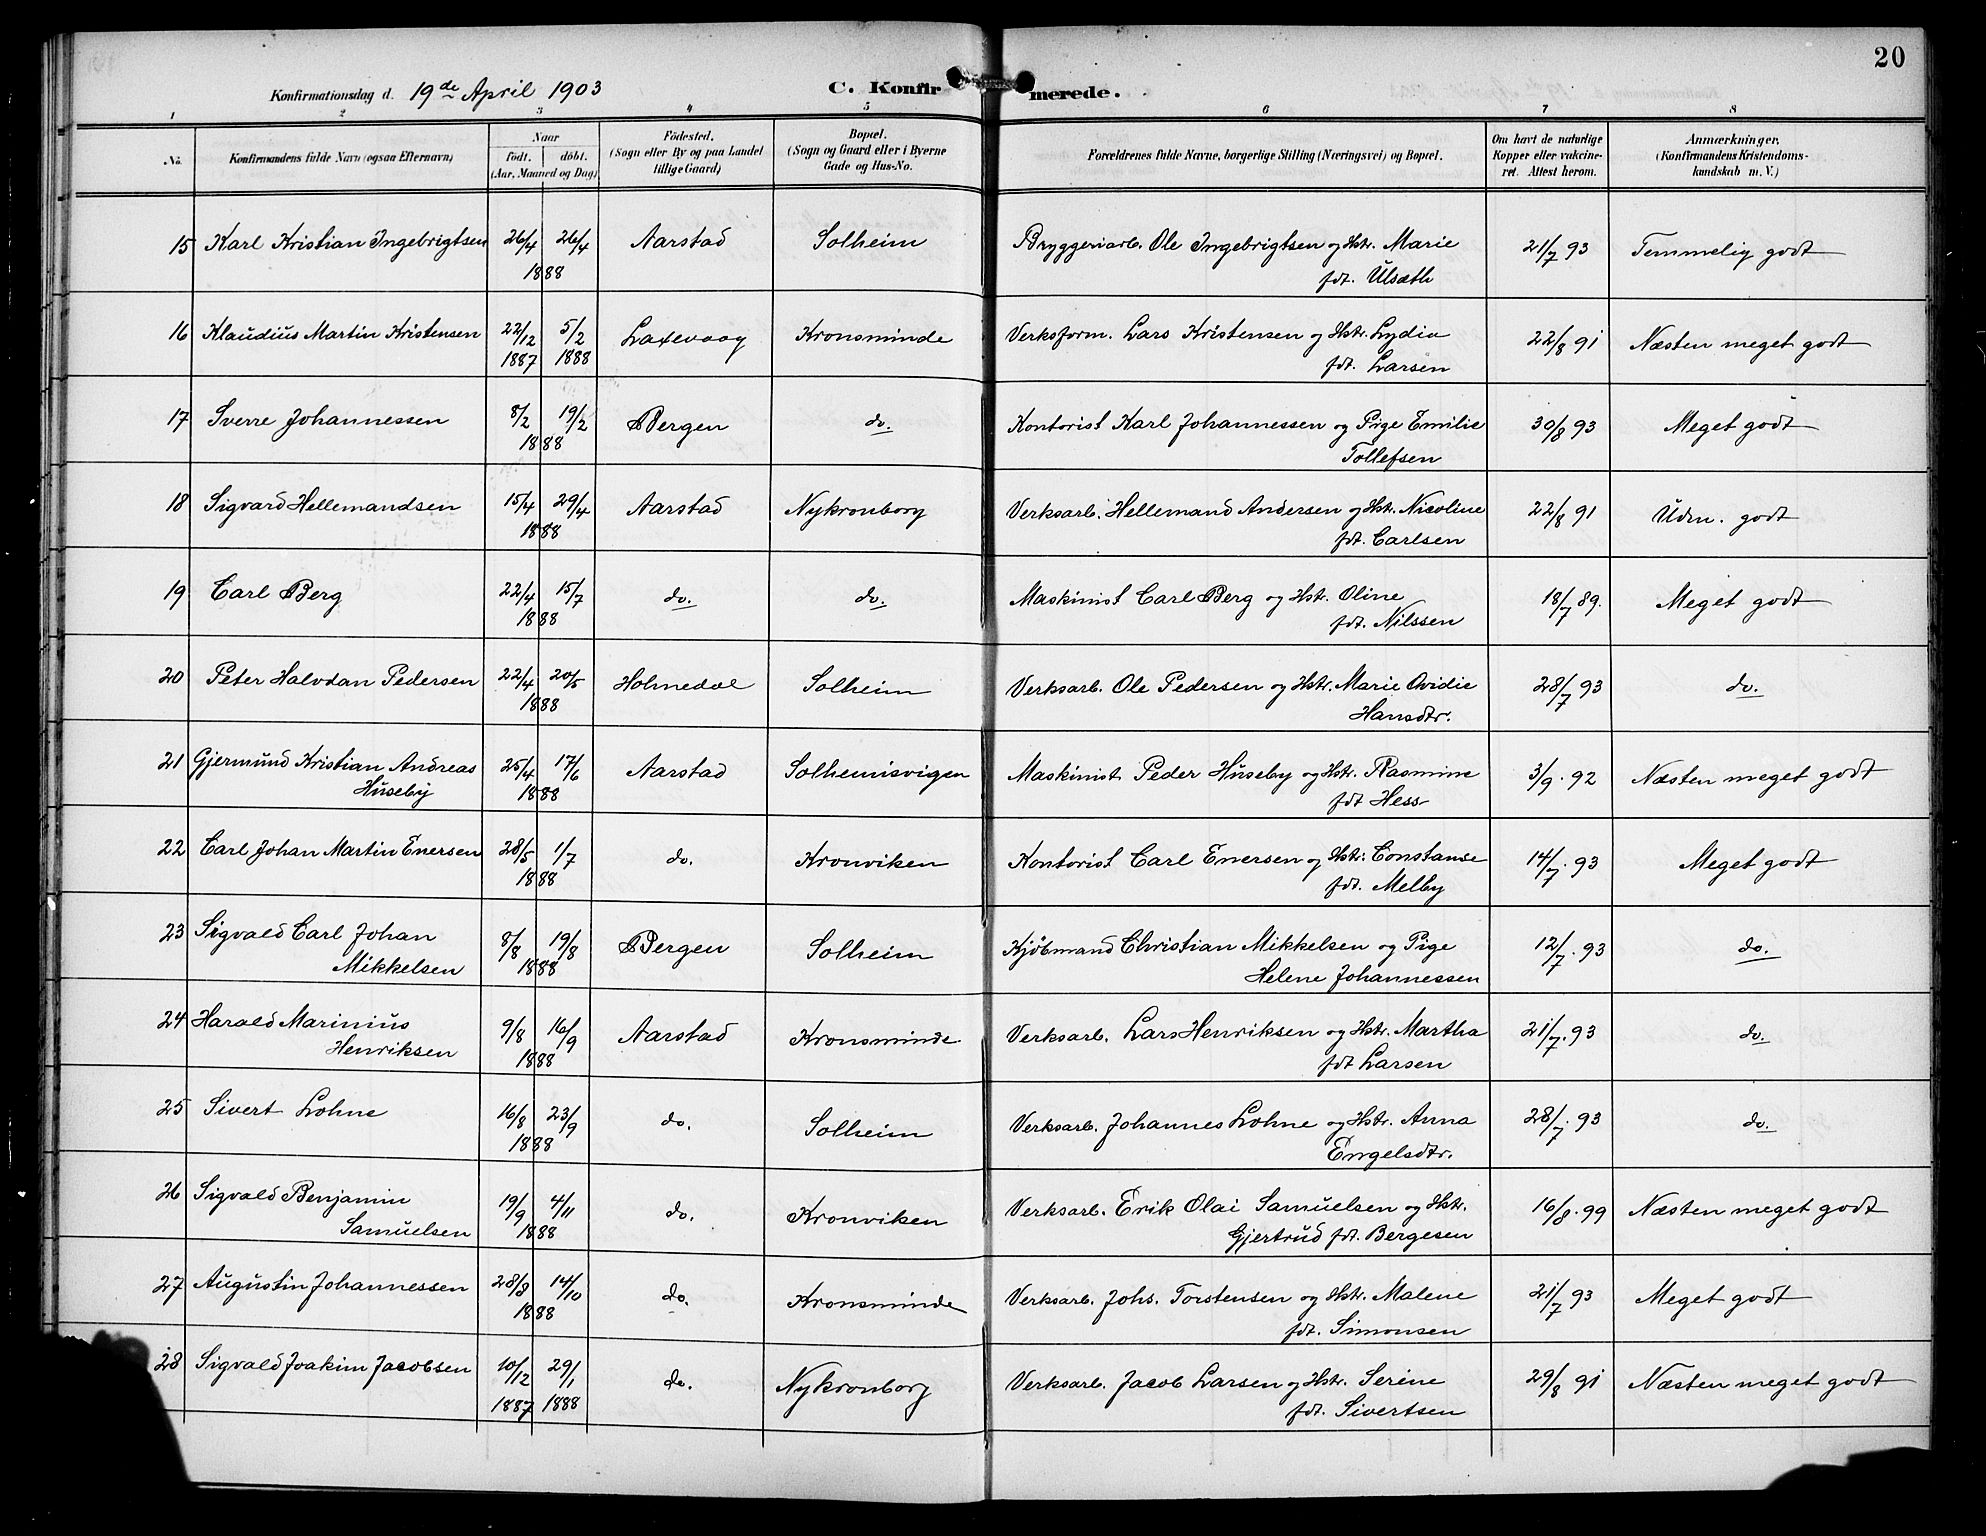 20
Konfirmationsdag d. 19de April 1903 C. Konfirmerede.
1 2 3 4 5 6 7 8
No. Konfirmandens fulde Navn (ogsaa Efternavn) Naar födt. döbt. (Aar, Maaned og Dag) Födested. (Sogn eller By og paa Landet tillige Gaard) Bopæl. (Sogn og Gaard eller i Byerne Gade og Hus-No. Forældrenes fulde Navne, borgerlige Stilling (Næringsvei) og Bopæl. Om havt de naturlige Kopper eller vakcineret. Attest herom. Anmærkninger. (Konfirmandens Kristendomskundskab m. V.)
15 Karl Kristian Ingebrigtsen 26/4 26/4 Aarstad Solheim Bryggeriarb. Ole Ingebrigtsen og Hstr. Marie 21/7 93 Temmelig godt
1888 fdt. Ulsæth
16 Klaudius Martin Kristensen 22/12 5/2 Laxevaag Kronsminde Verksform. Lars Kristensen og Hstr. Lydia 22/8 91 Næsten meget godt
1887 1888 fdt. Larsen
17 Sverre Johannessen 8/2 19/2 Bergen do. Kontorist Karl Johannessen og Pige Emilie 30/8 93 Meget godt
1888 Tollefsen
18 Sigvard Hellemandsen 15/4 29/4 Aarstad Nykronborg Verksarb. Hellemand Andersen og Hstr. Nicoline 22/8 91 Udm. godt
1888 fdt. Carlsen
19 Carl Berg 22/4 15/7 do. do. Maskinist Carl Berg og Hstr. Oline 18/7 89. Meget godt
1888 fdt. Nilssen
20 Peter Halvdan Pedersen 22/4 20/5 Holmedal Solheim Verksarb. Ole Pedersen og Hstr. Marie Ovidie 28/7 93 do.
1888 Hansdtr.
21 Gjermund Kristian Andreas 25/4 17/6 Aarstad Solheimsvigen Maskinist Peder Huseby og Hstr. Rasmine 3/9. 92 Næsten meget godt
Huseby 1888 fdt Hess
22 Carl Johan Martin Enersen 28/5 1/7 do. Kronviken Kontorist Carl Enersen og Hstr. Constanse 14/7. 93 Meget godt
1888 fdt. Melby
23 Sigvald Carl Johan 8/8 19/8 Bergen Solheim Kjöbmand Christian Mikkelsen og Pige 12/7. 93 do.
Mikkelsen 1888 Helene Johannessen
24 Harald Marinius 9/8 16/9 Aarstad Kronsminde Verksarb. Lars Henriksen og Hstr. Martha 21/7. 93 do.
Henriksen 1888 fdt Larsen
25 Sivert Lohne 16/8 23/9 do. Solheim Verksarb. Johannes Lohne og Hstr. Anna 28/7. 93 do.
1888 Engelsdtr.
26 Sigvald Benjamin 19/9 4/11 do. Kronviken Verksarb. Erik Olai Samuelsen og Hstr. 16/8. 99 Næsten meget godt
Samuelsen 1888 Gjertrud fdt. Bergesen
27 Augustin Johannessen 28/8 14/10 do. Kronsminde Verksarb. Johs. Torstensen og Hstr. Malene 21/7 93 Meget godt
1888 fdt. Simonsen
28 Sigvald Joakim Jacobsen 10/12 29/1 do. Nykronborg Verksarb. Jacob Larsen og Hstr. Serine 29/8 91 Næsten meget godt
1887 1888 fdt. Sivertsen